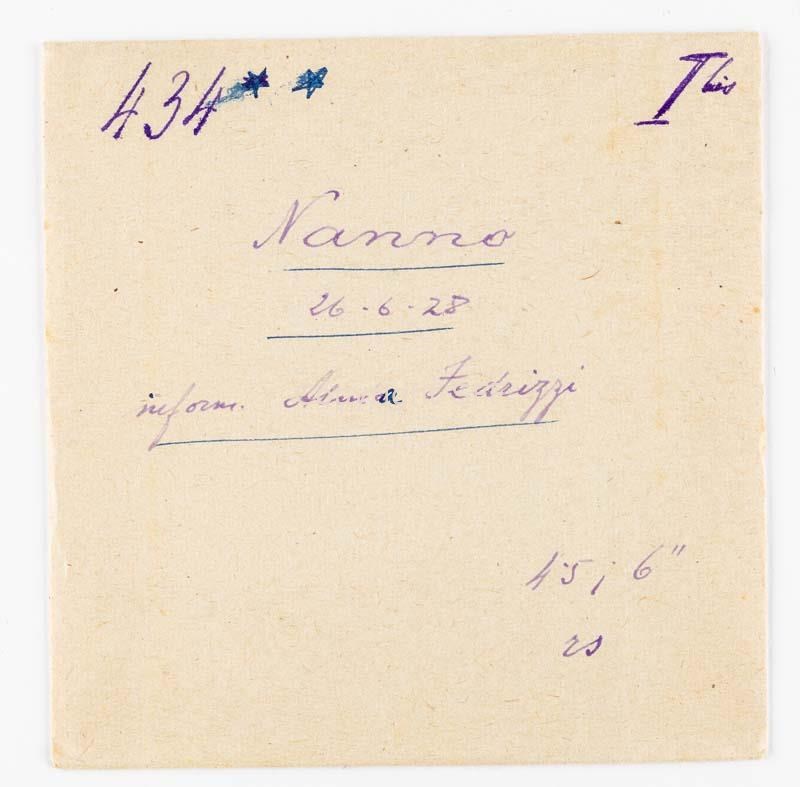 434** I bis
Nanno
26-6-28
inform. Fedrizzi
45; 6"
rs